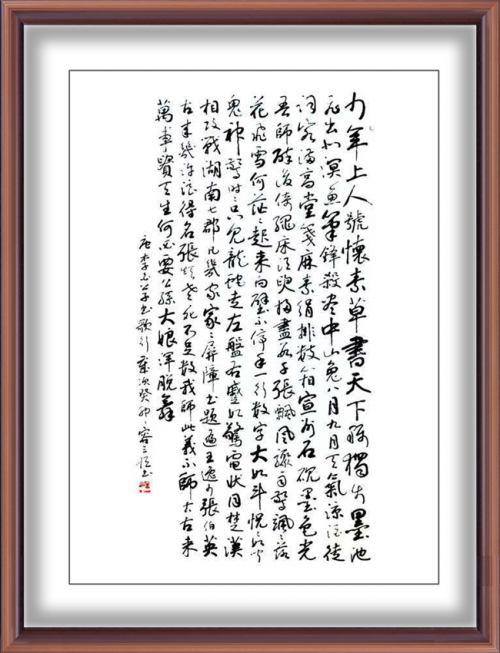 少年上人號懷素草書天下稱獨步墨池
飛出北溟魚筆鋒殺盡中山兔八月九月天氣涼酒徒
詞客滿高堂箋麻素絹排數箱宣州石硯墨色光
吾師醉後倚繩床須臾掃盡數千張飄風驟雨驚颯颯落
花飛雪何茫茫起來向壁不停手一行數字大如斗怳怳如聞
鬼神驚時時只見龍蛇走左盤右蹙如驚電狀同楚漢
相攻戰湖南七郡凡幾家家家屏障書題遍王逸少張伯英
古來幾許浪得名張顛老死不足數我師此義不師古古來
萬事貴天生何必要公孫大娘渾脫舞
唐李白草書歌行歲次癸卯